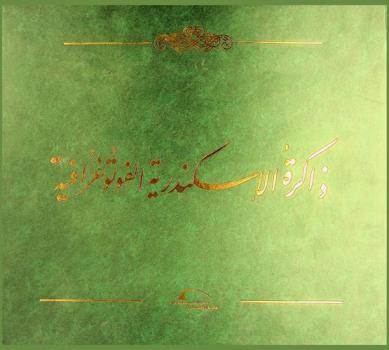 ذاكرة الإسكندرية الفوتوغرافية